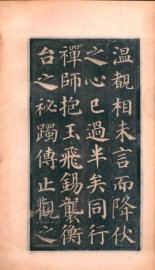 温覩相未言而降伏
之心已過半矣同行
禪師抱玉飛錫襲衡
台之祕躅傳止觀之